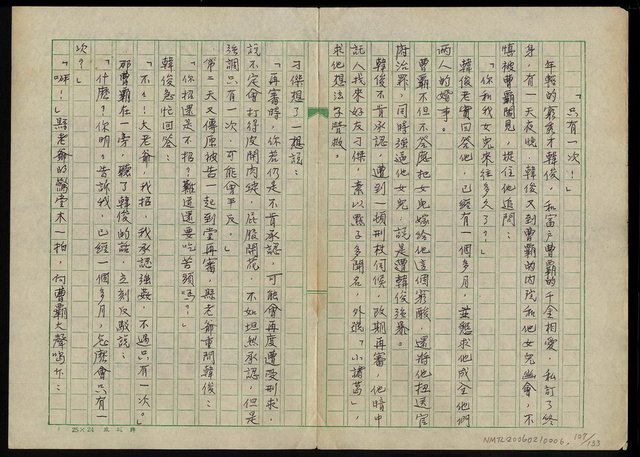 「只有一次！」
年輕的窮秀才韓俊，和富户曹霸的千金相愛，私訂了終
身，有一天夜晚，韓俊又到曹霸的内院和他女兒幽會，不
慎被曹霸闖見，捉住他追問：
「你和我女兒來往多久了？」
韓俊老實回答他，已經有一個多月，並懇求他成全他們
两人的婚事。
曹霸不但不答應把女兒嫁給他這個窮酸，還將他扭送官
府治罪，同時強逼他女兒，說是遭韓俊強暴。
韓俊不肯承認，遭到一頓刑杖伺候，改期再審，他暗中
託人找來好友刁傑，素以點子多聞名，外號「小諸葛」，
求他想法子營救。
刁傑想了一想說：
「再審時，你若仍是不肯承認，可能會再度遭受刑求，
說不定會打得皮開肉綻，屁股開花，不如坦然承認，但是
強調只有一次，可能會平反。」
第二天又傳原被告一起到堂再審，縣老爺重問韓俊：
「你招還是不招？難道還要吃苦頭嗎？」
韓俊急忙回答：
「不！不！大老爺，我招，我承認強姦，不過只有一次。」
那曹霸在一旁，聽了韓俊的話，立刻反駁說：
「什麼？你明明告訴我，已經一個多月，怎麼會只有一
次？」
「啊！」縣老爺的驚堂木一拍，向曹霸大聲喝斥：
25×24
NMTL20060210006
107/133